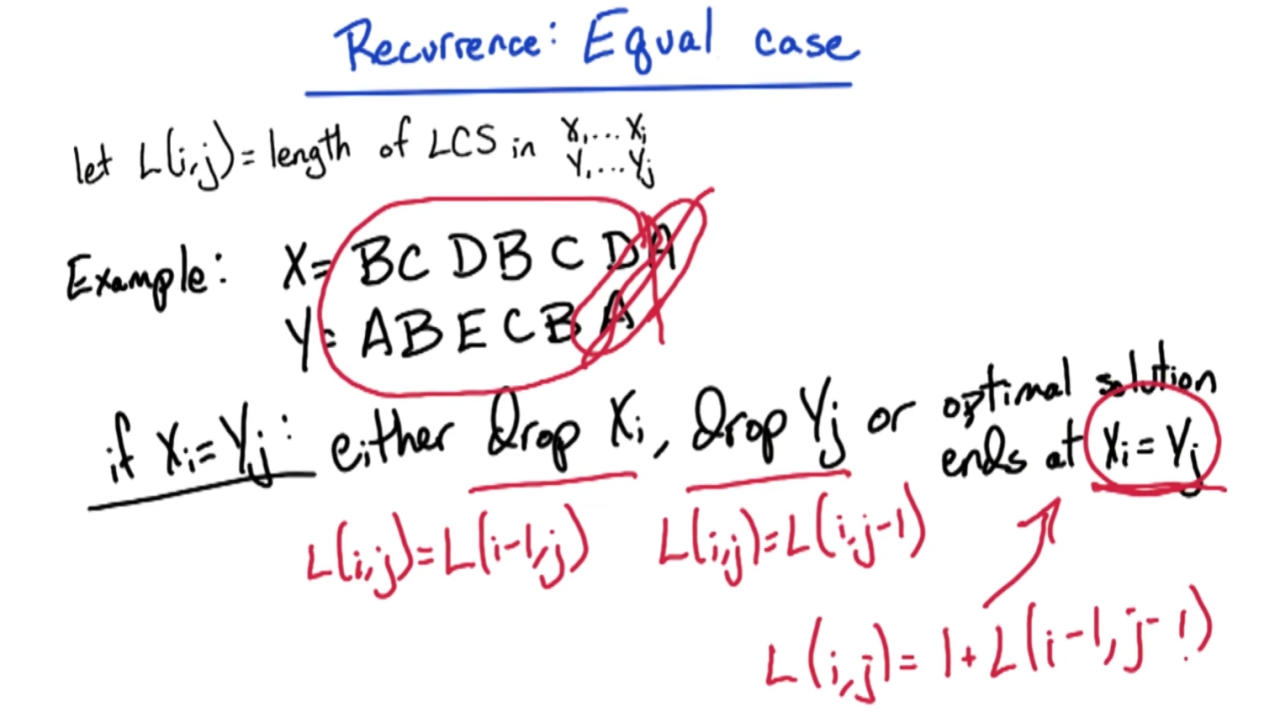 Recurrence: Equal case
let L(i,j) = length of LCS in X₁...Xᵢ
Y₁...Yⱼ
Example: X= BCDBCDA
Y= ABECBA
if Xᵢ=Yⱼ: either drop Xᵢ, drop Yⱼ or optimal solution
ends at Xᵢ=Yⱼ
L(i,j)=L(i-1,j) L(i,j)=L(i,j-1)
L(i,j)= 1+L(i-1,j-1)